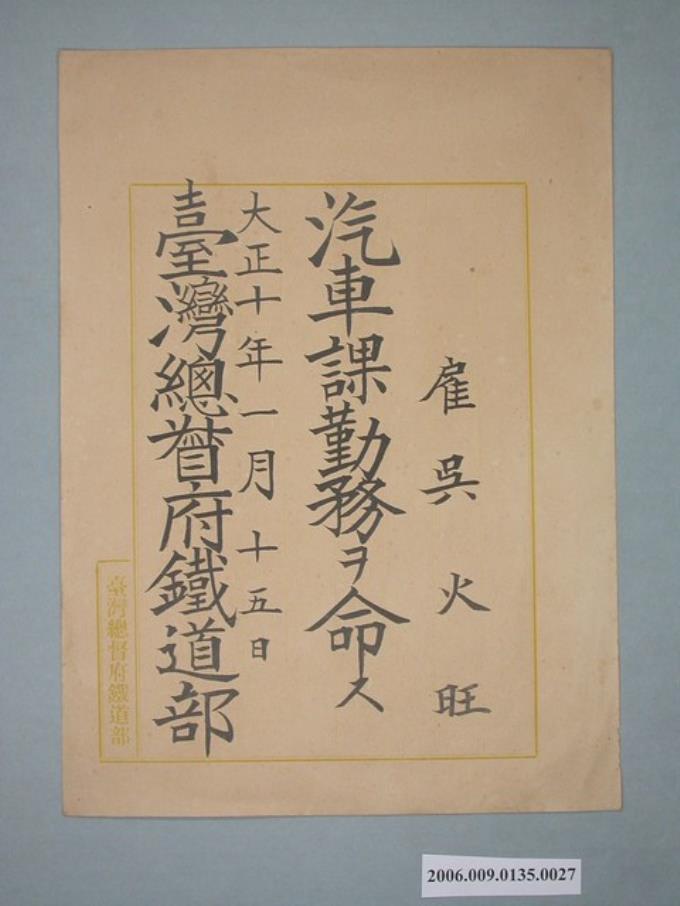 雇 吳 火 旺
汽車課勤務ヲ命ス
大正十年一月十五日
臺灣總督府鐵道部
臺灣總督府鐵道部
2006.009.0135.0027